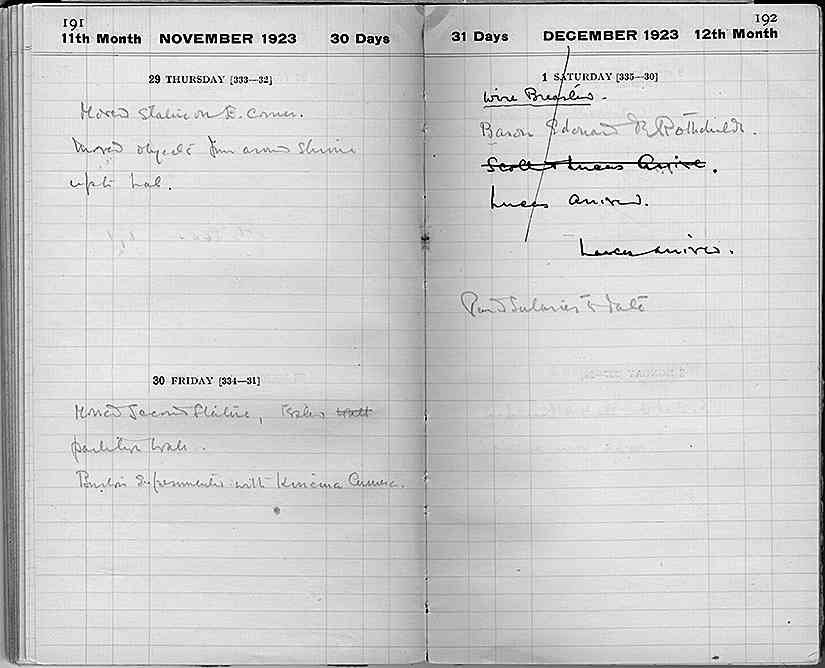 191
11th Month NOVEMBER 1923 30 Days
29 THURSDAY [333—32]
Moved statue on E. Corner.
Moved objects from around Shrine
up to wall.
30 FRIDAY [334—31]
Moved Second Statue, wall
partition wall.
Burton Experiments with Kinema Camera.
192
31 Days DECEMBER 1923 12th Month
1 SATURDAY [335—30]
Wire Breasted.
Baron Edouard R. Rothschild.
Scott & Lucas Arrive.
Lucas arrived.
Lucas arrived.
Paid Salaries to date